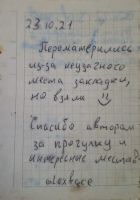 23.10.21
Перематерились
из-за неудачного
места закладки,
но взяли
Спасибо авторам
за прогулку и
интересные места
alexbace